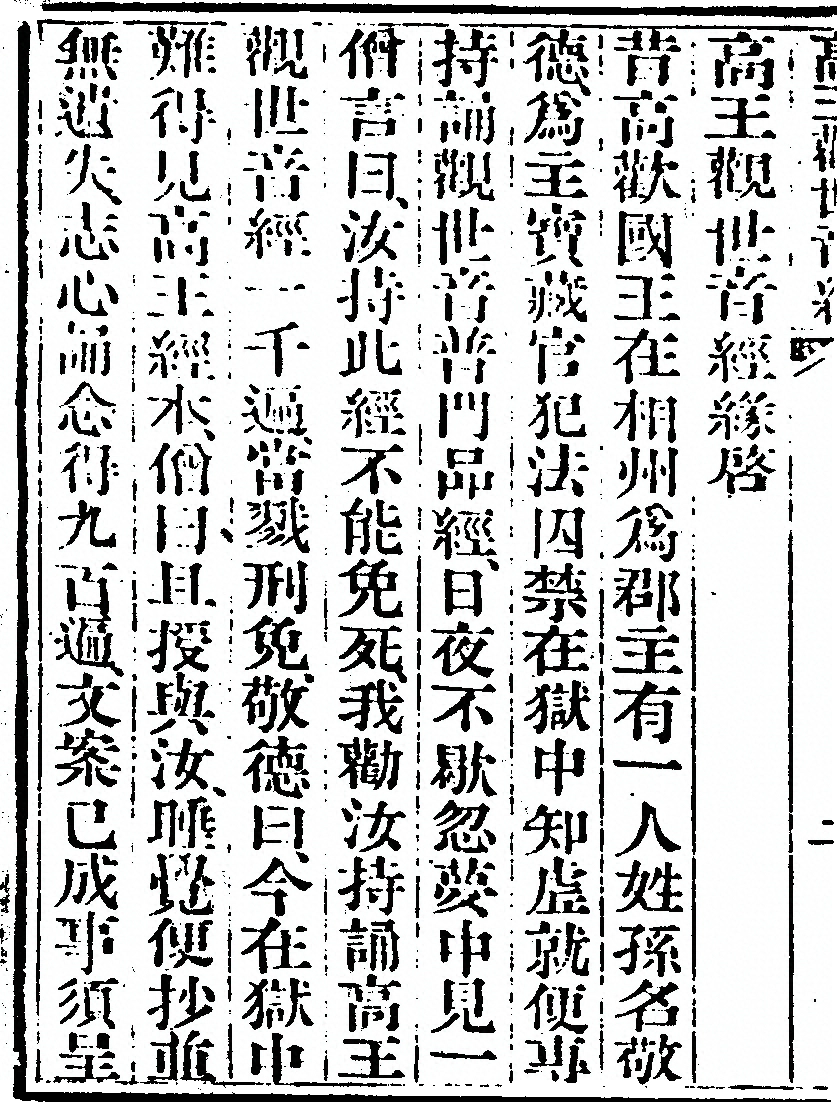 高王觀世音經
二
高王觀世音經緣啓
昔高歡國王在相州爲郡主有一人姓孫名敬
德、爲主寶藏官犯法囚禁在獄中知虛就便專
持誦觀世音普門品經、日夜不歇忽夢中見一
僧言曰、汝持此經不能免死、我勸汝持誦高王
觀世音經一千遍、當戮刑免、敬德曰、今在獄中
難得見高王經本、僧曰、且授與汝、睡覺便抄並
無遺失、志心誦念得九百遍、文案已成事須呈